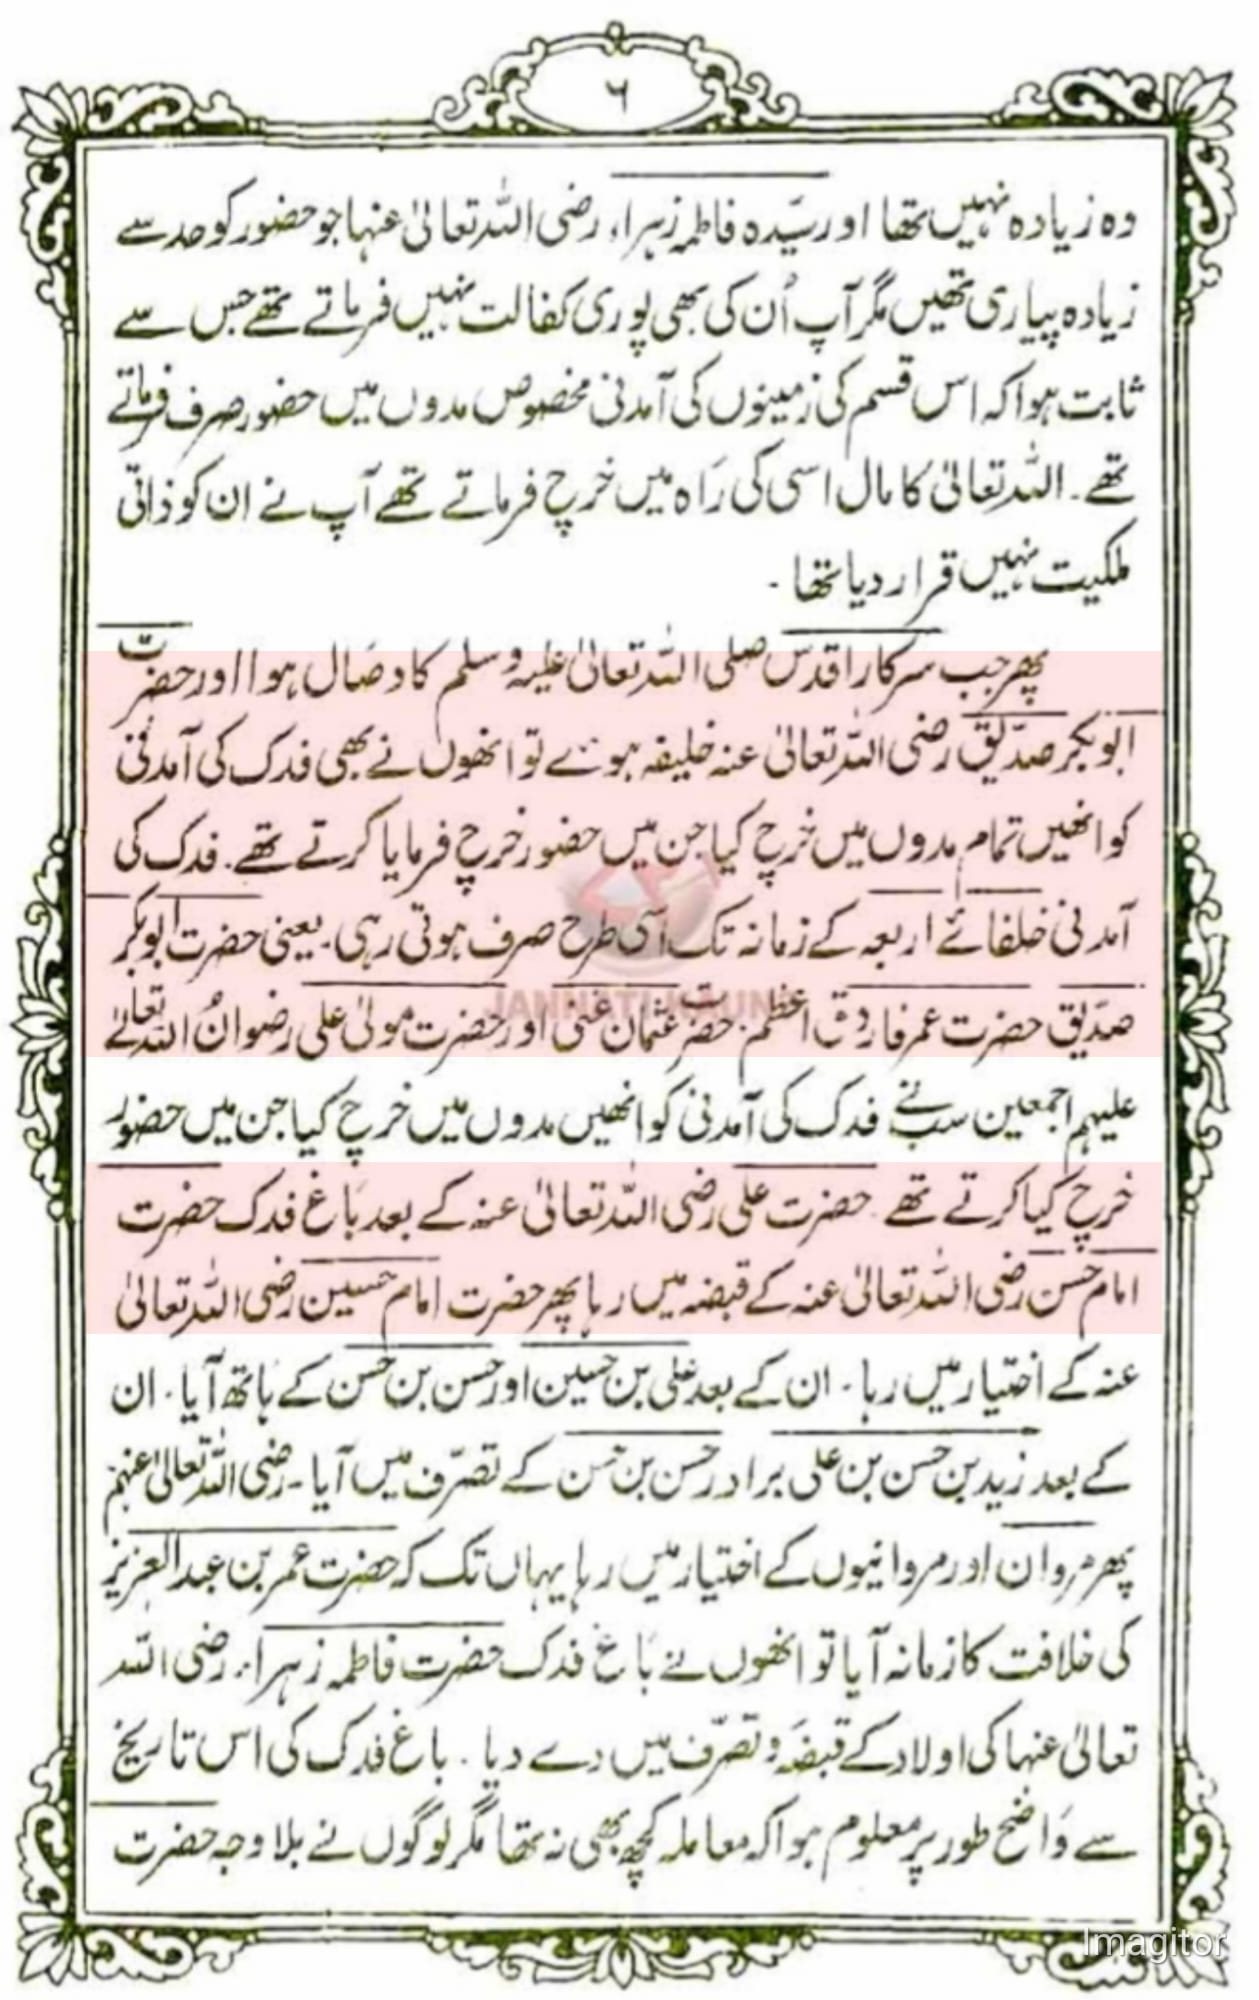 ۶
وہ زیادہ نہیں تھا اور سیّدہ فاطمہ زہراء رضی اللہ تعالیٰ عنہا جو حضور کو حد سے
زیادہ پیاری تھیں مگر آپ اُن کی بھی پوری کفالت نہیں فرماتے تھے جس سے
ثابت ہوا کہ اس قسم کی زمینوں کی آمدنی مخصوص مدوں میں حضور صرف فرماتے
تھے۔ اللہ تعالیٰ کا مال اسی کی رَاہ میں خرچ فرماتے تھے آپ نے ان کو ذاتی
ملکیت نہیں قرار دیا تھا۔
پھر جب سرکار اقدس صلی اللہ تعالیٰ علیہ وسلم کا وصَال ہوا اور حضرت
ابوبکر صدّیق رضی اللہ تعالیٰ عنہ خلیفہ ہوئے تو انھوں نے بھی فدک کی آمدنی
کو انھیں تمام مدوں میں خرچ کیا جن میں حضور خرچ فرمایا کرتے تھے۔ فدک کی
آمدنی خلفائے اربعہ کے زمانہ تک اسی طرح صرف ہوتی رہی۔ یعنی حضرت ابوبکر
صدّیق حضرت عمر فاروق اعظم، حضرت عثمان غنی اور حضرت مولیٰ علی رضوانُ اللہ تعالےٰ
علیہم اجمعین سب نے فدک کی آمدنی کو انھیں مدوں میں خرچ کیا جن میں حضور
خرچ کیا کرتے تھے۔ حضرت علی رضی اللہ تعالیٰ عنہ کے بعد بَاغ فدک حضرت
امام حسن رضی اللہ تعالیٰ عنہ کے قبضہ میں رہا پھر حضرت امام حسین رضی اللہ تعالیٰ
عنہ کے اختیار میں رہا۔ ان کے بعد علی بن حسین اور حسن بن حسن کے ہاتھ آیا۔ ان
کے بعد زید بن حسن بن علی برادر حسن بن حسن کے تصرّف میں آیا۔ رضی اللہ تعالیٰ عنہم
پھر مروان اور مروانیوں کے اختیار میں رہا یہاں تک کہ حضرت عمر بن عبد العزیز
کی خلافت کا زمانہ آیا تو انھوں نے بَاغ فدک حضرت فاطمہ زہراء رضی اللہ
تعالیٰ عنہا کی اولاد کے قبضہ و تصرّف میں دے دیا۔ باغ فدک کی اس تاریخ
سے وَاضح طور پر معلوم ہوا کہ معاملہ کچھ بھی نہ تھا مگر لوگوں نے بلا وجہ حضرت
JANNATI KAUN
Imagitor